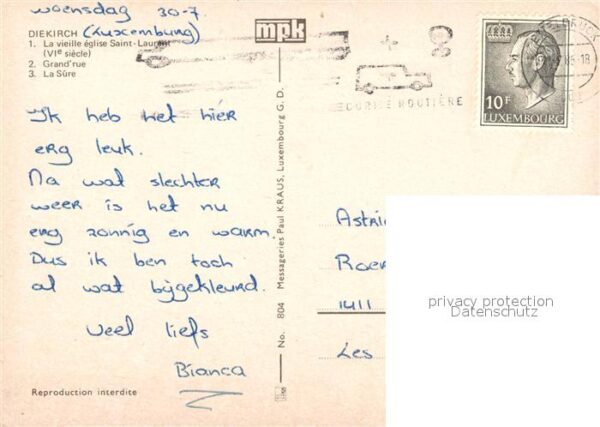 woensdag 30-7
(Luxemburg)
DIEKIRCH
1. La vieille église Saint-Laurent
(VIe siècle)
2. Grand'rue
3. La Sûre
Ik heb het hier
erg leuk.
Na wat slechter
weer is het nu
erg zonnig en warm.
Dus ik ben toch
al wat bijgekleurd.
Veel liefs
Bianca
Reproduction interdite
mpk
No. 804 Messageries Paul KRAUS, Luxembourg G. D.
ROUTIÈRE
10F
LUXEMBOURG
Astri
Roer
1411
Les
privacy protection
Datenschutz